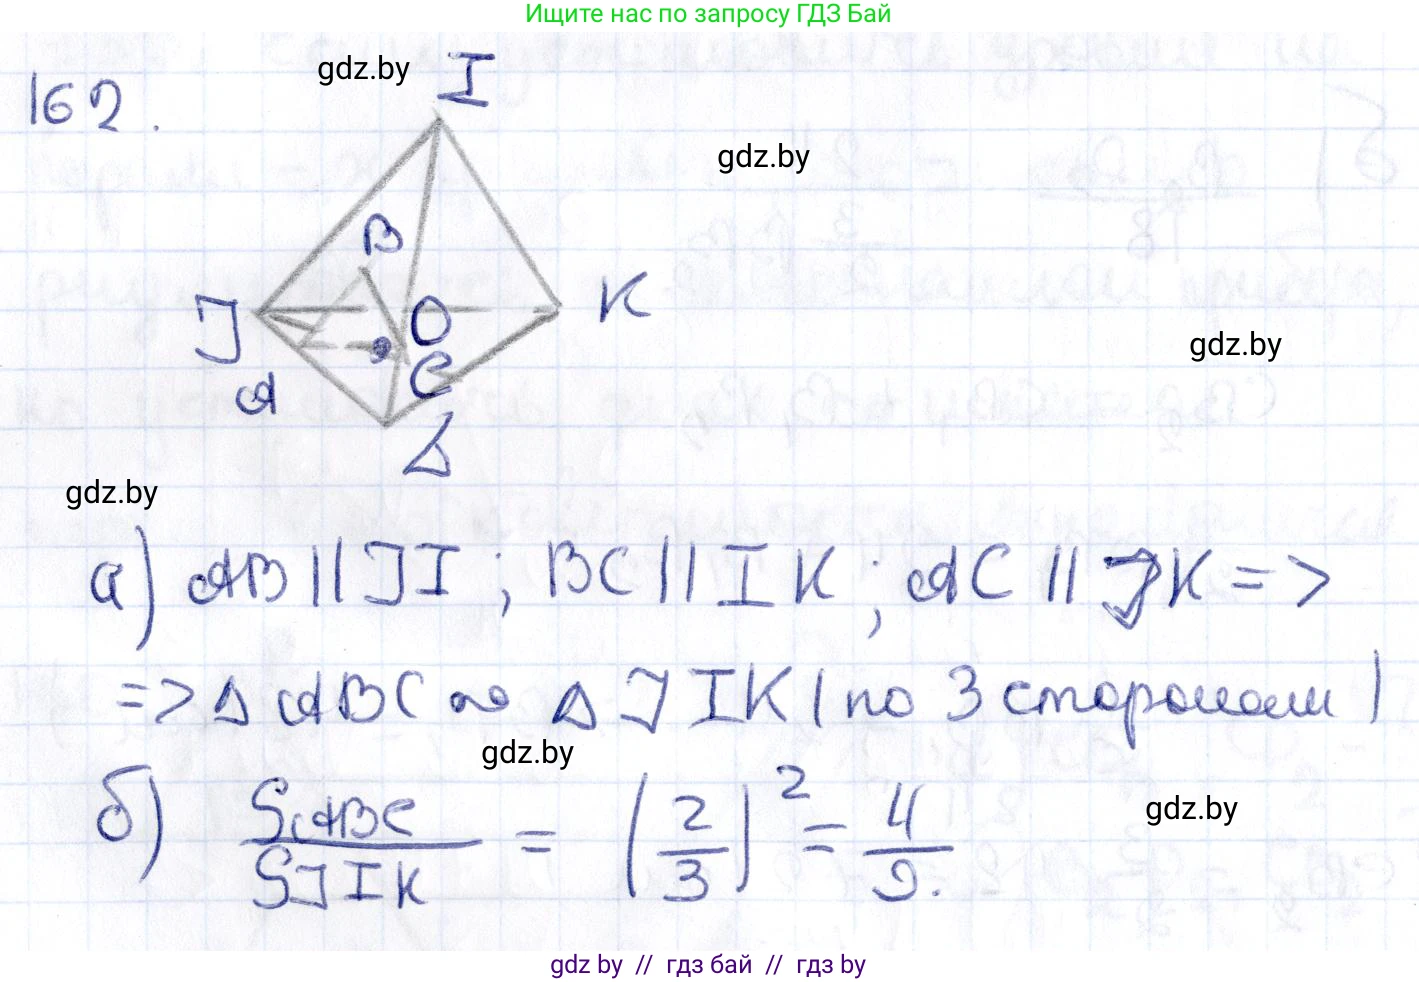 Ищите нас по запросу ГДЗ Бай
gdz.by
I
162.
gdz.by
B
J
O
K
gdz.by
C
A
L
gdz.by
а) AB || JI ; BC || IK ; AC || JK =>
=> Δ ABC ∾ Δ JIK (по 3 сторонам)
gdz.by
б) SABC/SJIK = (2/3)² = 4/9.
gdz.by
gdz by // гдз бай // гдз by